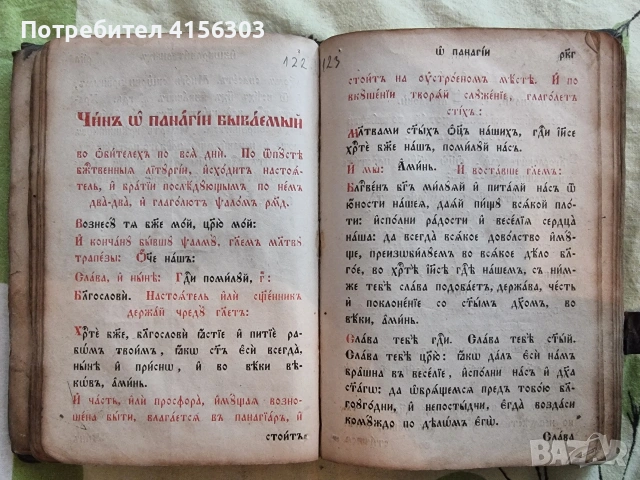 Потребител 4156303
122
Чи́нъ ѡ҆ пана́гїи быва́емый
во ѻ҆би́телехъ по всѧ̑ дни̑. По ѿпꙋ́стѣ
бж҃е́ственныѧ лїтꙋргі́и, и҆схо́дитъ настоѧ́-
тель, и҆ бра́тїи послѣ́дꙋющымъ по не́мъ
два̀-два̀, и҆ глаго́лютъ ѱало́мъ рм҃д.
Вознесꙋ́ тѧ бж҃е мо́й, цр҃ю̀ мо́й:
И҆ конча́нꙋ бы́вшꙋ ѱалмꙋ̀, гл҃емъ мл҃твꙋ
трапе́зы: Ѻ҆́ч҃е на́шъ:
Сла́ва, и҆ ны́нѣ: Гд҃и поми́лꙋй, г҃:
Бл҃гословѝ. Настоѧ́тель и҆лѝ сщ҃е́нникъ
держа́й чредꙋ̀ гл҃етъ:
Хрⷭ҇тѐ бж҃е, бл҃гословѝ ꙗ҆́стїе и҆ питїѐ ра-
бѡ́мъ твои̑мъ, ꙗ҆́кѡ ст҃ъ є҆сѝ всегда̀,
ны́нѣ и҆ при́снѡ, и҆ во вѣ́ки вѣ-
кѡ́въ, а҆ми́нь.
И҆ ча́сть, и҆лѝ просфора̀, и҆мꙋ́щаѧ возно-
ше́на бы́ти, влага́етсѧ въ панагїа́ръ, и҆
стои́тъ
123
Ѡ҆ пана́гїи
рк҃г
стои́тъ на ᲂу҆стро́еномъ мѣ́стѣ. И҆ по
вкꙋше́нїи творѧ́й слꙋже́нїе, глаго́летъ
сті́хъ:
Мл҃твами ст҃ы́хъ ѻ҆ц҃ъ на́шихъ, гдⷭ҇и і҆и҃се
хрⷭ҇тѐ бж҃е на́шъ, поми́лꙋй на́съ.
И҆ мы̀: А҆ми́нь. И҆ воста́вше гл҃емъ:
Бл҃гве́нъ бг҃ъ ми́лꙋѧй и҆ пита́ѧй на́съ ѿ
ю҆́ности на́шеѧ, даѧ́й пи́щꙋ всѧ́кой пло́-
ти: и҆спо́лни ра́дости и҆ весе́лїѧ сердца̀
на̑ша: да всегда̀ всѧ́кое дово́лство и҆мꙋ́-
ще, преизбы́лꙋемъ во всѧ́кое дѣ́ло бл҃-
го́е, ѡ҆ хрⷭ҇тѣ̀ і҆и҃сѣ гдⷭ҇ѣ на́шемъ, съ ни́м-
же тебѣ̀ сла́ва подоба́етъ, держа́ва, че́сть
и҆ поклоне́нїе со ст҃ы́мъ дх҃омъ, во
вѣ́ки, а҆ми́нь.
Сла́ва тебѣ̀ гдⷭ҇и. Сла́ва тебѣ̀ ст҃ы́й.
Сла́ва тебѣ̀ цр҃ю̀: ꙗ҆́кѡ да́лъ є҆сѝ на́мъ
бра̑шна въ весе́лїе, и҆спо́лни на́съ и҆ дх҃а
ст҃а́гѡ: да ѡ҆брѧ́щемсѧ пред̾ тобо́ю бл҃-
гоꙋгѡ́дни, и҆ непосты́дни, є҆гда̀ возда́си
комꙋ́ждо по дѣлѡ́мъ є҆гѡ̀.
Сла́ва
BAZAR